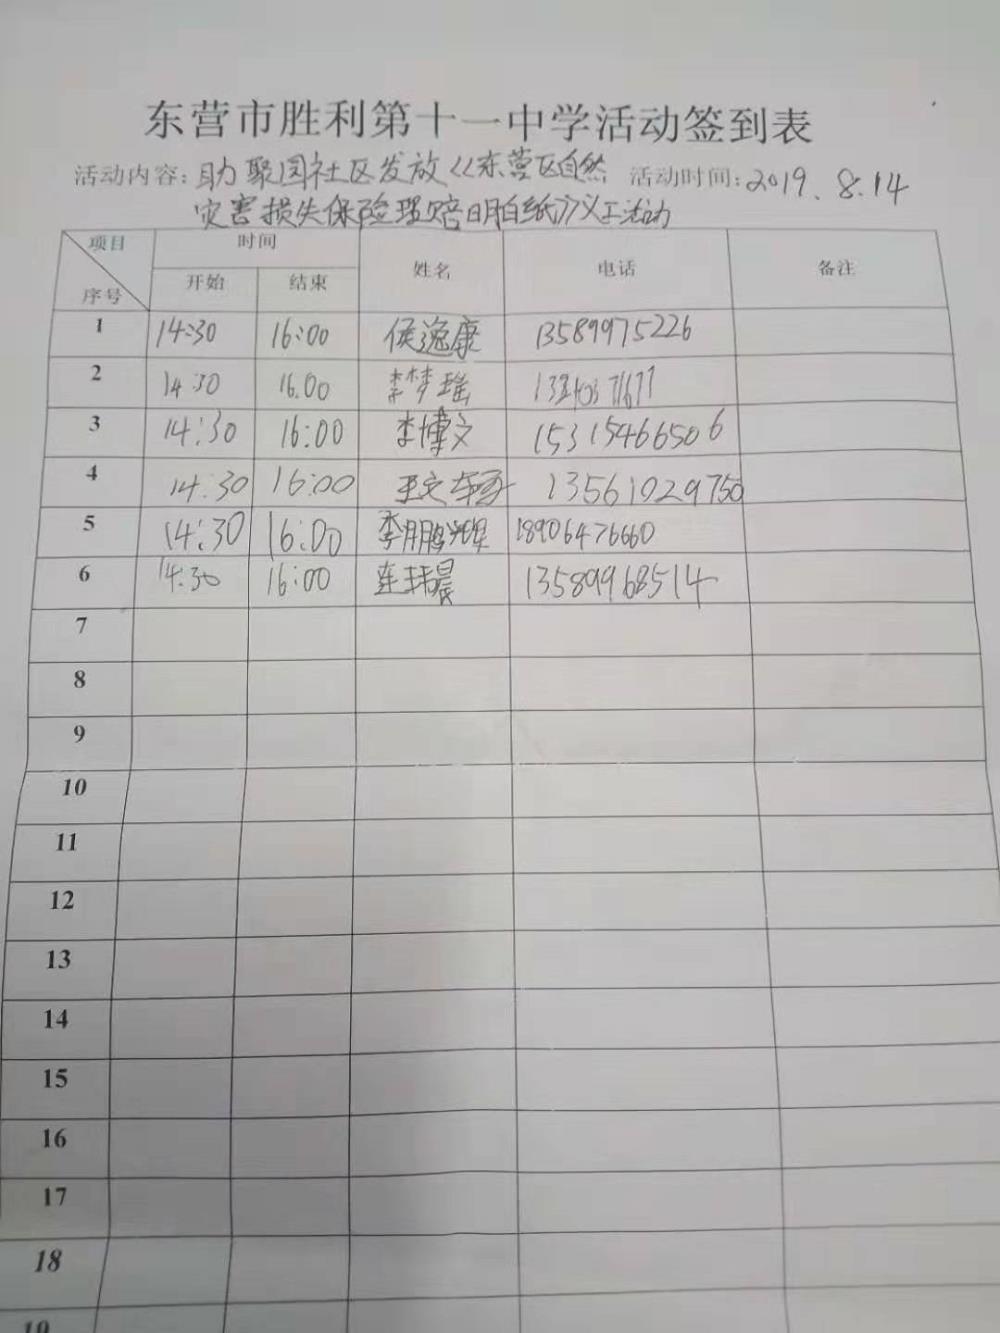 东营市胜利第十一中学活动签到表
活动内容: 助聚园社区发放《东营区自然 活动时间: 2019.8.14
灾害损失保险理赔明白纸》义工活动
项目 时间 姓名 电话 备注
序号 开始 结束
1 14:30 16:00 侯逸康 13589975226
2 14:30 16:00 李梦瑶
3 14:30 16:00 李博文 15315466506
4 14:30 16:00 13561029750
5 14:30 16:00 李鹏辉 18906476660
6 14:30 16:00 连玮晨 13589968514
7
8
9
10
11
12
13
14
15
16
17
18
19